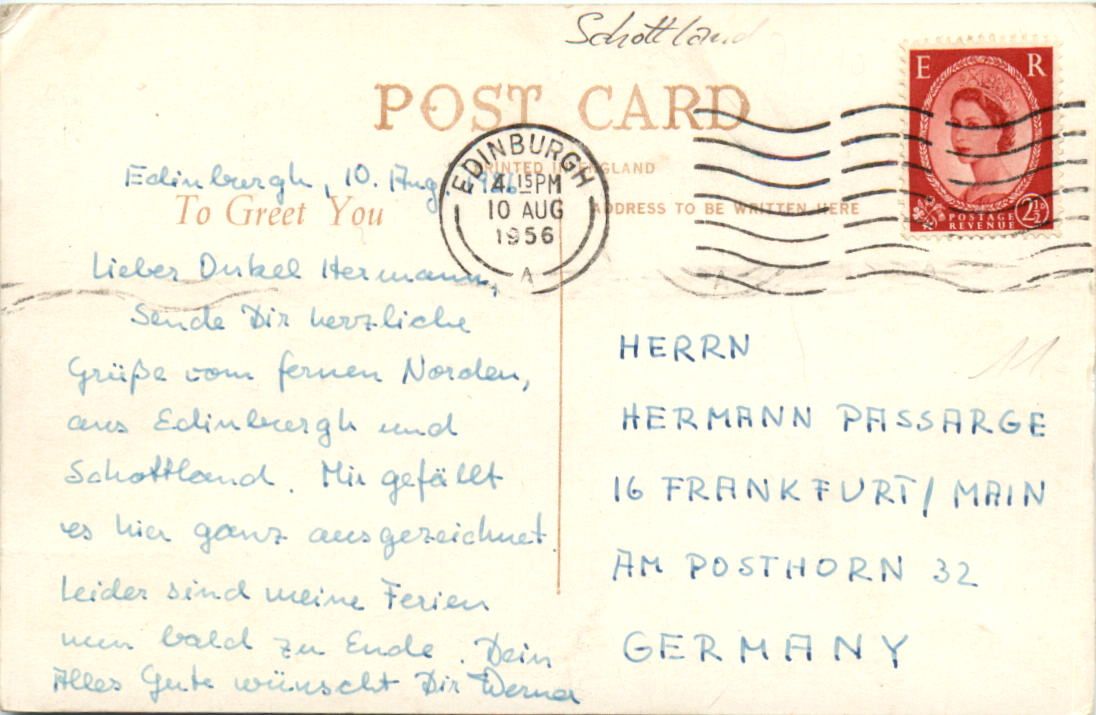 Schottland
E R
POST CARD
PRINTED IN ENGLAND
EDINBURGH
4.15PM
10 AUG
1956
A
Edinburgh, 10. Aug.
To Greet You
ADDRESS TO BE WRITTEN HERE
POSTAGE
REVENUE
2½D
Lieber Onkel Hermann,
Sende Dir herzliche
Grüße vom fernen Norden,
aus Edinburgh und
Schottland. Mir gefällt
es hier ganz ausgezeichnet
Leider sind meine Ferien
nun bald zu Ende. Dein
Alles Gute wünscht Dir Werner
HERRN
HERMANN PASSARGE
16 FRANKFURT/MAIN
AM POSTHORN 32
GERMANY